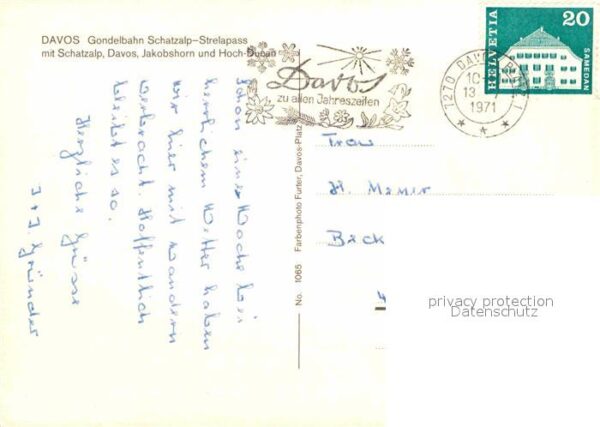 DAVOS Gondelbahn Schatzalp–Strelapass
mit Schatzalp, Davos, Jakobshorn und Hoch-Ducan
Davos
zu allen Jahreszeiten
7270 DAVOS PLATZ 1
10
13
1971
HELVETIA
20
SAMEDAN
Schon eine Woche bei
herrlichem Wetter haben
wir hier mit Wandern
verbracht. Hoffentlich
bleibt es so.
Herzliche Grüsse
J + J Gründer
No. 1065 Farbenphoto Furter, Davos-Platz
Frau
H. Mener
Beck
privacy protection
Datenschutz